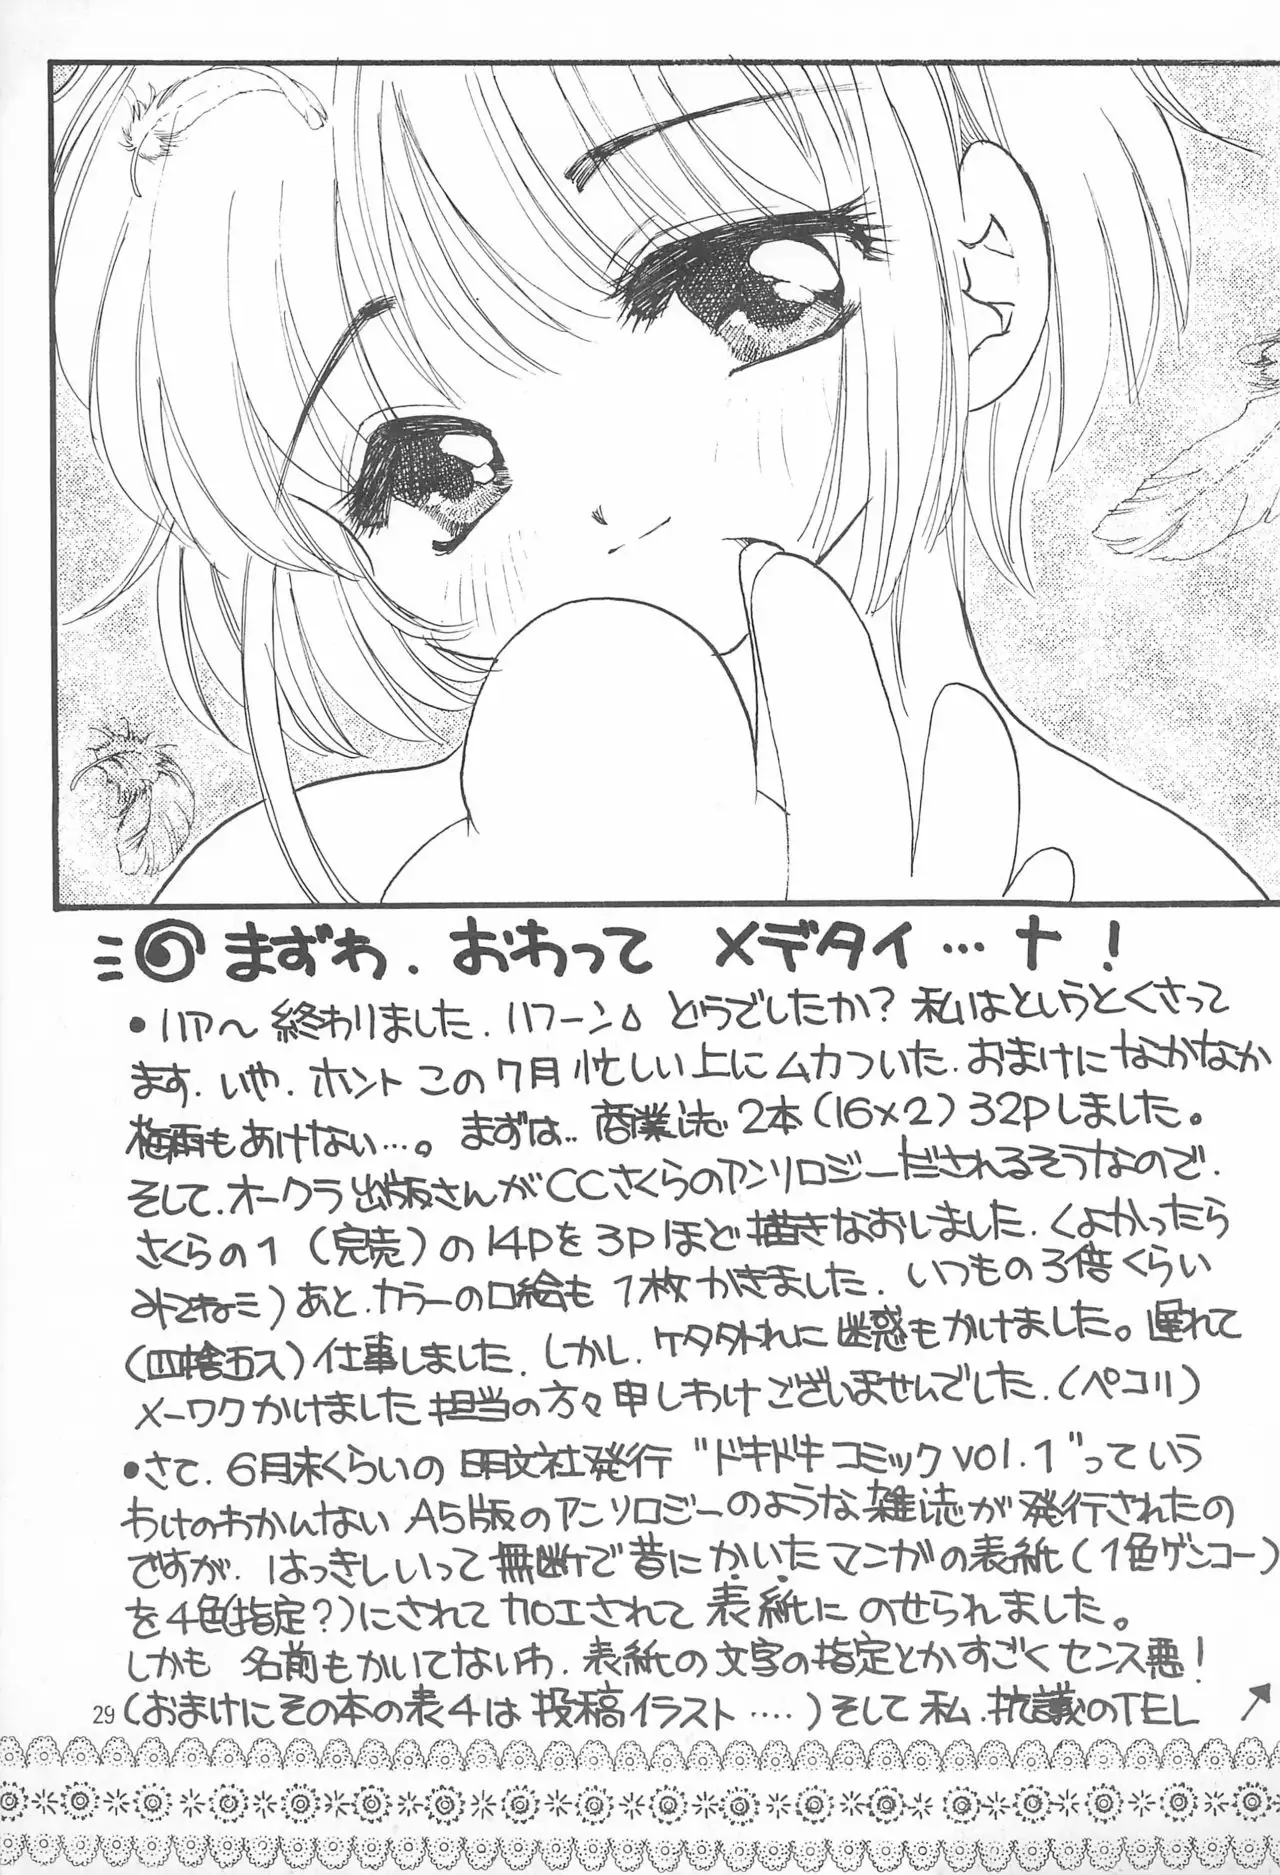 まずわ．おわって メデタイ…ナ！
・ハア〜 終わりました．ハフーン どうでしたか？ 私はというとくさって
ます．いや．ホント この7月 忙しい上にムカついた．おまけになかなか
梅雨もあけない…。まずは‥商業誌 2本(16×2) 32Pしました。
そして．オークラ出版さんがCCさくらのアンソロジーだされるそうなので．
さくらの1 (完売)の14Pを3Pほど描きなおしました．(よかったら
みてネミ) あと．カラーの口絵も 1枚かきました．いつもの3倍くらい
(四捨五入) 仕事しました．しかし．ケタ外れに迷惑もかけました。遅れて
メーワクかけました担当の方々申しわけございませんでした．(ペコリ)
・さて．6月末くらいの 明文社発行 “ドキドキコミックvol.1”っていう
わけのわかんない A5版のアンソロジーのような雑誌が発行されたの
ですが．はっきしいって無断で昔にかいたマンガの表紙(1色ゲンコー)
を4色(指定？)にされて 加工されて 表紙に のせられました。
しかも 名前もかいてないわ．表紙の文字の指定とかすごくセンス悪！
(おまけにその本の表4は投稿イラスト‥‥) そして 私．抗議のTEL
29